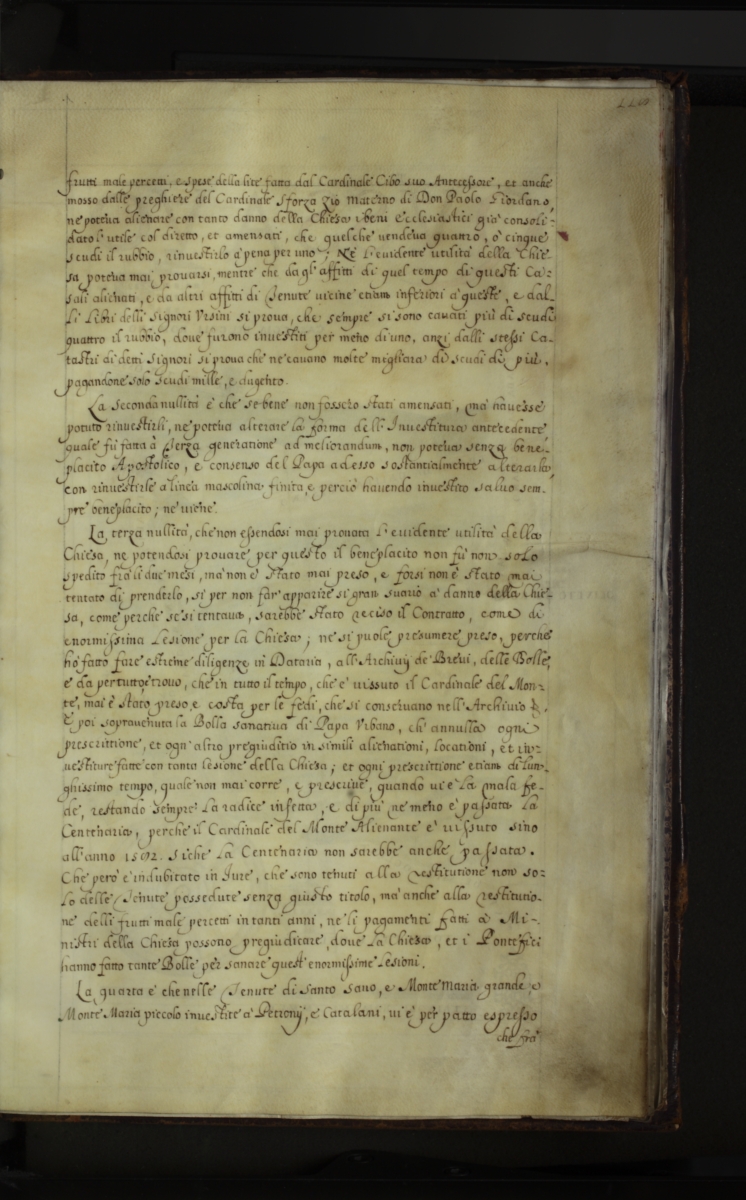 frutti male percetti, e spese della lite fatta dal Cardinale Cibo suo Antecessore, et anche
mosso dalle preghiere del Cardinale Sforza zio materno di Don Paolo Giordano
ne poteva alienare con tanto danno della Chiesa i beni ecclesiastici già consoli-
dato l'utile col diretto, et amensati, che quelche vendeva quattro, ò cinque
scudi il rubbio, rinvestirlo a pena per uno; Ne l'evidente utilità della Chie-
sa poteva mai provarsi, mentre che da gl'affitti di quel tempo di questi Ca-
sali alienati, e da altri affitti di Tenute vicine etiam inferiori à queste, e dal-
li Libri delli Signori Vrsini si prova, che sempre si sono cavati più di scudi
quattro il rubbio, dove furono investiti per meno di uno, anzi dalli stessi Ca-
tastri di detti Signori si prova che ne cavano molte migliara di scudi di più,
pagandone solo scudi mille, e dugento.
La seconda nullità è che se bene non fossero stati amensati, ma havesse
potuto rinvestirli, ne poteva alterare la forma dell'Investitura antecedente
quale fù fatta à Terza generatione ad meliorandum, non poteva senza bene-
placito Apostolico, e consenso del Papa adesso sostantialmente alterarla
con rinvestirle a linea mascolina finita, e perciò havendo investito salvo sem-
pre beneplacito; ne viene.
La terza nullità, che non essendosi mai provata l'evidente utilità della
Chiesa, ne potendosi provare per questo il beneplacito non fù non solo
spedito frà li due mesi, ma non è stato mai preso, e forsi non è stato mai
tentato di prenderlo, si per non far apparire si gran svario à danno della Chie-
sa, come perche se si tentava, sarebbe stato reciso il Contratto, come di
enormissima Lesione per la Chiesa; ne si puole presumere preso, perche
hò fatto fare estreme diligenze in Dataria, all'Archivij de Brevi, delle Bolle,
e da per tutto, e trovo, che in tutto il tempo, che è vissuto il Cardinale del Mon-
te, mai è stato preso, e costa per le fedi, che si conservano nell'Archivio
E poi sopravenuta la Bolla sanativa di Papa Vrbano, ch'annulla ogni
prescrittione, et ogn'altro pregiuditio in simili alienationi, locationi, et in-
vestiture fatte con tanta lesione della Chiesa; et ogni prescrittione etiam di lun-
ghissimo tempo, quale non mai corre, e prescrive, quando vi è la mala fe-
de, restando sempre la radice infetta, e di più ne meno è passata la
Centenaria, perche il Cardinale del Monte Alienante è vissuto sino
all'anno 1572. Siche la Centenaria non sarebbe anche passata.
Che però è indubitato in Jure, che sono tenuti alla restitutione non so-
lo delle Tenute possedute senza giusto titolo, ma anche alla restitutio-
ne delli frutti male percetti in tanti anni, ne li pagamenti fatti a Mi-
nistri della Chiesa possono pregiudicare, dove la Chiesa, et i Pontefici
hanno fatto tante Bolle per sanare quest'enormissime Lesioni.
La quarta è che nelle Tenute di Santo Sano, e Monte Maria grande e
Monte Maria piccolo investite a Petronij, e Catalani, vi è per patto espresso
che frà